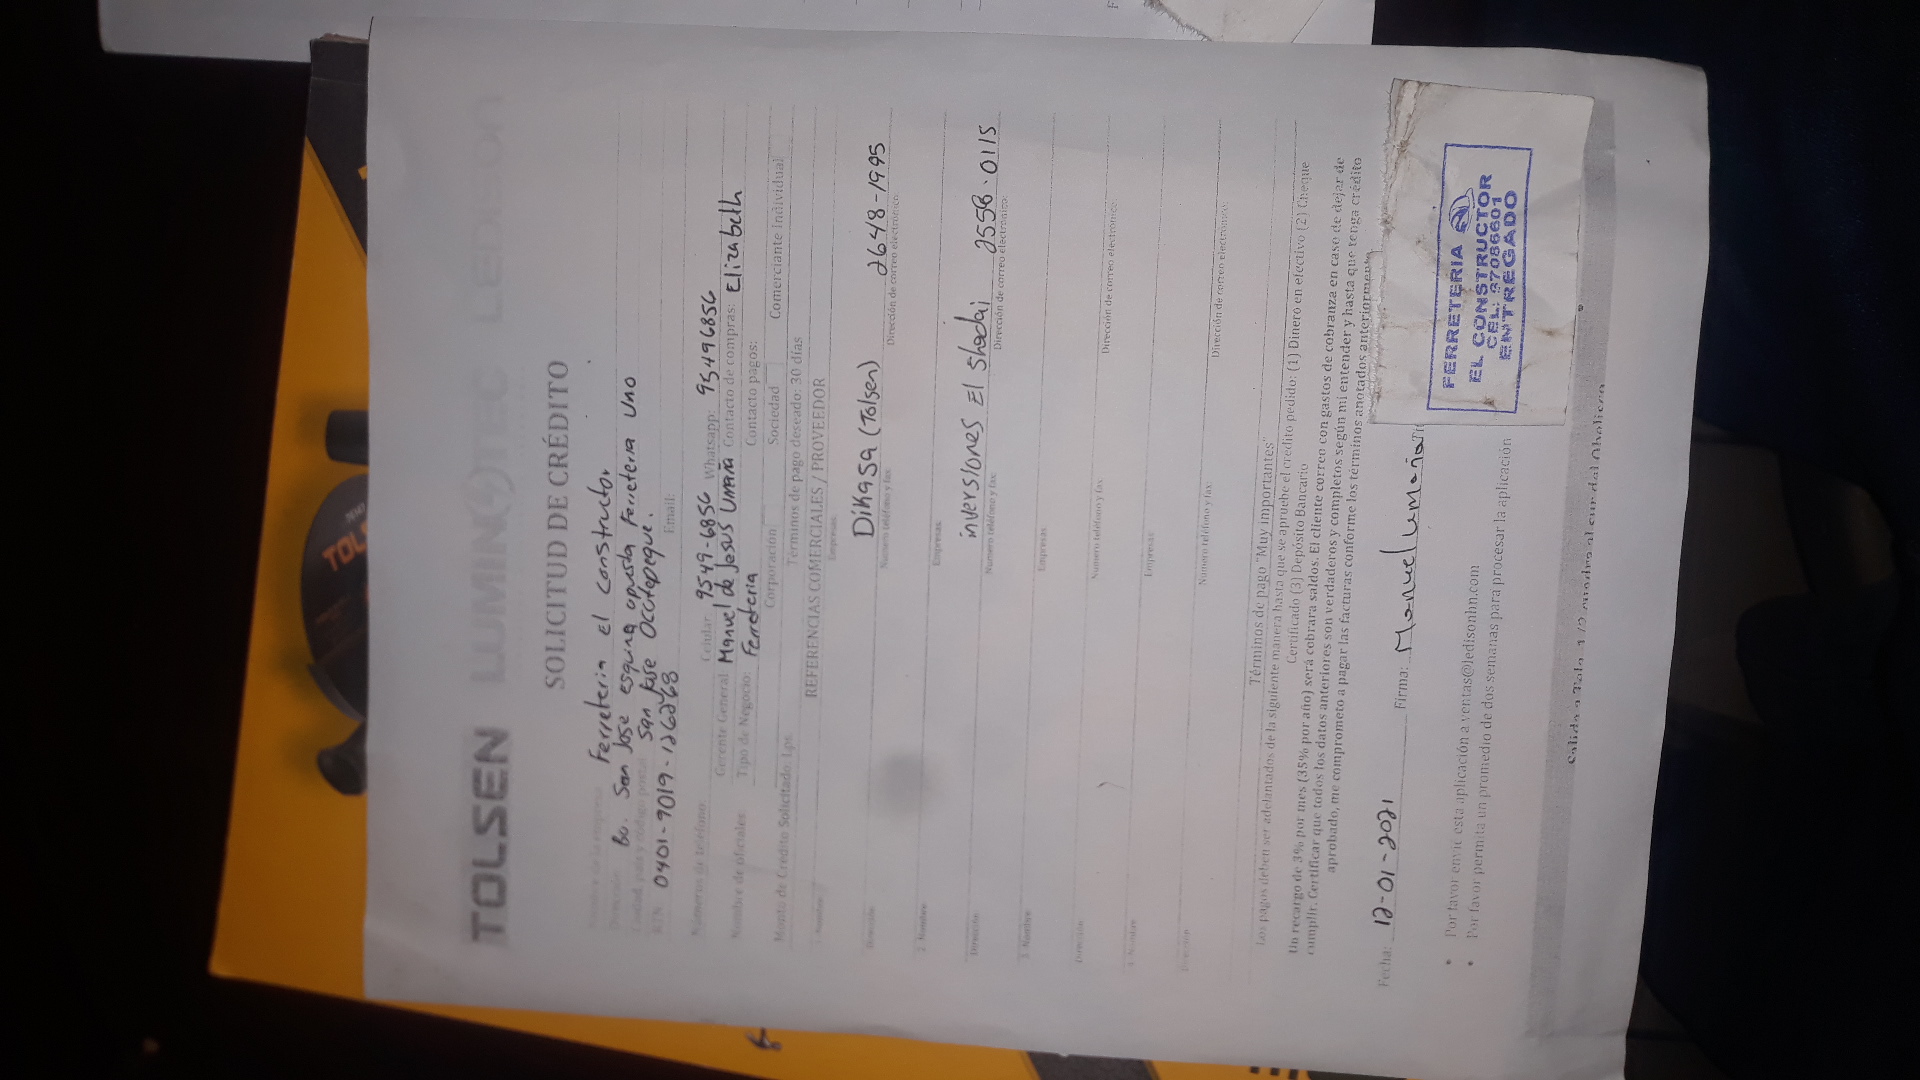 TOLSEN
TOLSEN LUMINOTEC LEDISON
SOLICITUD DE CRÉDITO
Nombre de la empresa: Ferreteria El Constructor
Dirección: Bo. San Jose esquina opusta Ferreteria Uno
Ciudad, país y código postal: San Jose Ocotepeque.
RTN: 0401-9019-126268 Email:
Números de teléfono: Celular: 9549-6856 Whatsapp: 95496856
Gerente General: Manuel de Jesus Umaña Contacto de compras: Elizabeth
Nombre de oficiales: Tipo de Negocio: Ferreteria Contacto pagos:
Corporación Sociedad Comerciante Individual
Monto de Crédito Solicitado: Lps. Términos de pago deseado: 30 días
REFERENCIAS COMERCIALES / PROVEEDOR
1. Nombre: Empresas:
Dikasa (Tolsen) 2648-1995
Dirección: Numero teléfono y fax: Dirección de correo electrónico:
2. Nombre: Empresas:
inversiones El Shadai 2558-0115
Dirección: Numero teléfono y fax: Dirección de correo electrónico:
3. Nombre: Empresas:
Dirección: Numero teléfono y fax: Dirección de correo electrónico:
4. Nombre: Empresas:
Dirección: Número teléfono y fax: Dirección de correo electrónico:
Términos de pago "Muy importantes"
Los pagos deben ser adelantados de la siguiente manera hasta que se apruebe el credito pedido: (1) Dinero en efectivo (2) Cheque
Certificado (3) Depósito Bancario
Un recargo de 3% por mes (35% por año) será cobrara saldos. El cliente correo con gastos de cobranza en caso de dejar de
cumplir. Certificar que todos los datos anteriores son verdaderos y completos según mi entender y hasta que tenga crédito
aprobado, me comprometo a pagar las facturas conforme los términos anotados anteriormente
Fecha: 12-01-2021 Firma: Manuel Umaña
• Por favor envié esta aplicación a ventas@ledisonhn.com
• Por favor permita un promedio de dos semanas para procesar la aplicación
FERRETERIA
EL CONSTRUCTOR
CEL: 97086601
ENTREGADO
Salida a Tela, 1/2 cuadra al sur del Obelisco